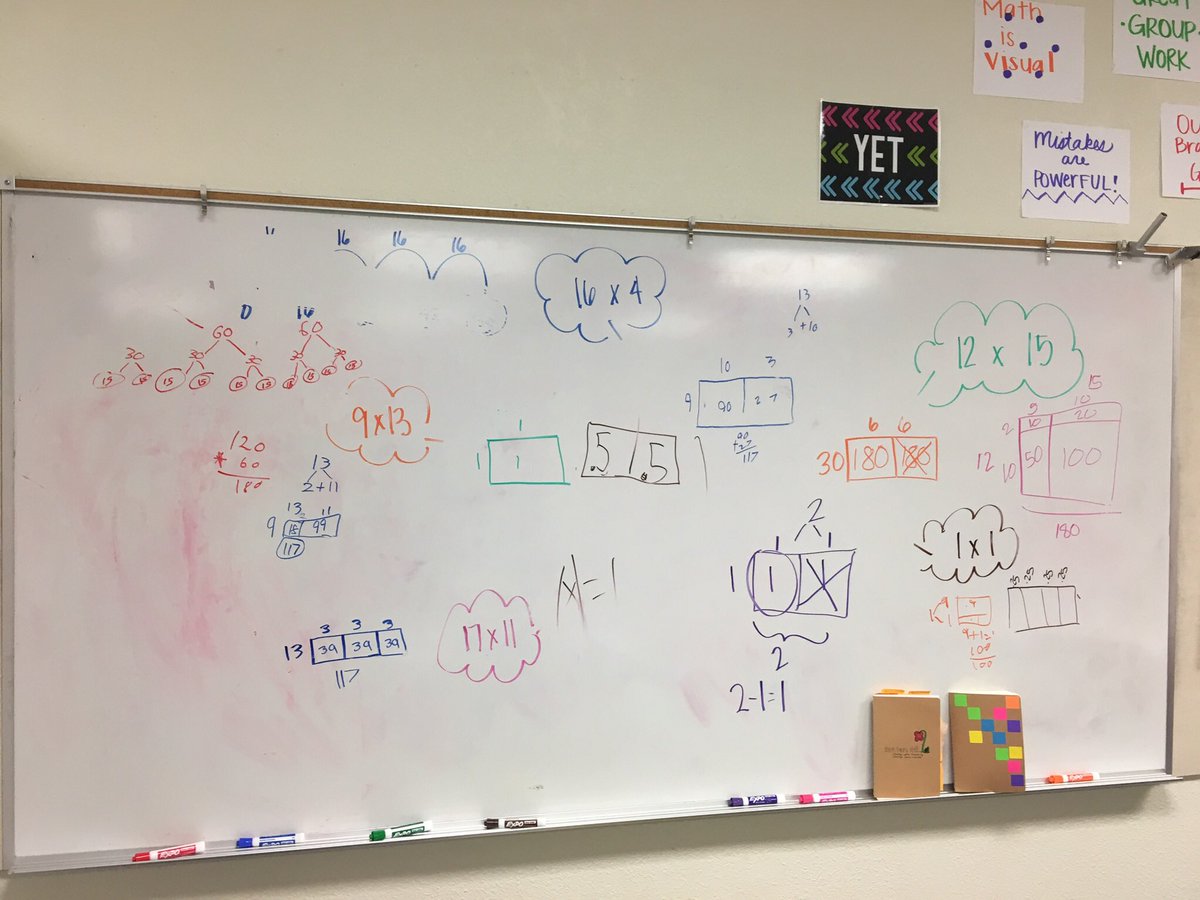 Math
is
Visual
GROUP
WORK
YET
Mistakes
are
POWERFUL!
16 16 16
16 x 4
13
3 +10
12 x 15
60 60
30 30 30
15 15 15 15 15 15
9x13
10 3
9 90 27
90
+27
117
1
1 1
.5 .5
6 6
30 180 180
15
5 10
2 10 20
12
10 50 100
180
120
60
180
13
2+11
13 11
9 18 99
117
2
1 1
1 1 1
2
2-1=1
1x1
.25 .25 .25 .25
=1
3 3 3
13 39 39 39
117
17x11
9+1=1
100
100
EXPO
EXPO
EXPO
EXPO
EXPO
EXPO
EXPO